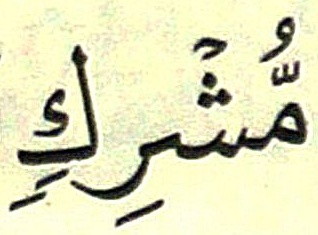 مُّشْرِكِ